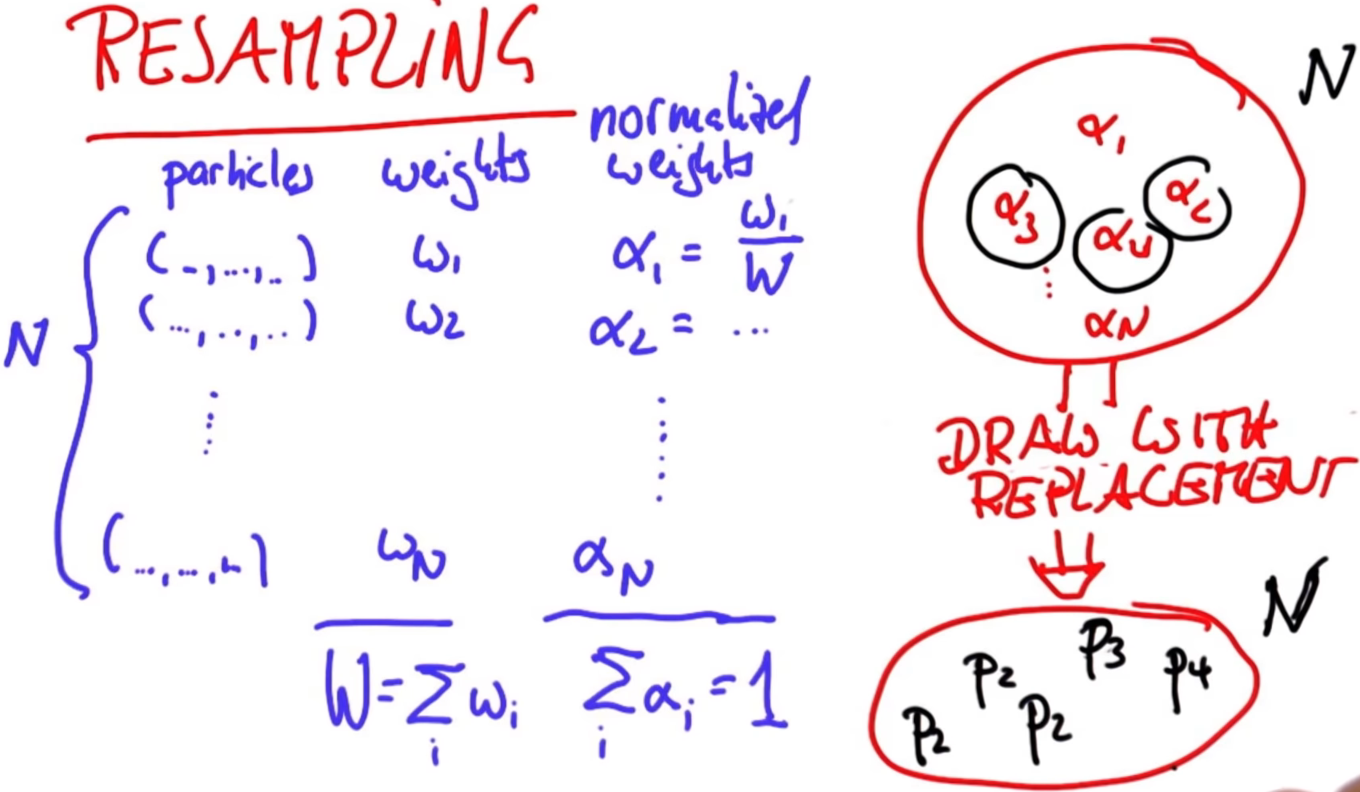 RESAMPLING
particles weights normalized weights
N
(..., ..., ...) ω₁ α₁ = ω₁/W
(..., ..., ...) ω₂ α₂ = ...
⋮ ⋮
(..., ..., ...) ωN αN
W = Σᵢ ωᵢ Σᵢ αᵢ = 1
N
α₁
α₃ α₄ α₂
⋮
αN
DRAW WITH
REPLACEMENT
N
p₃
p₂ p₄
p₂ p₂